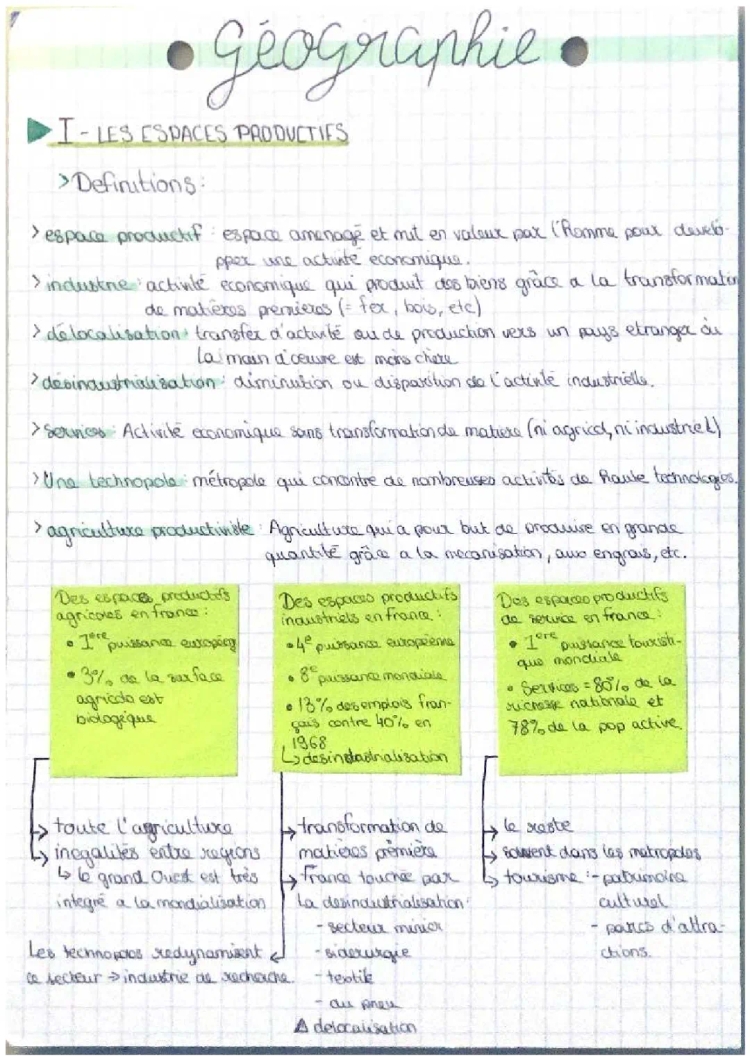 Géographie
I - LES ESPACES PRODUCTIFS
> Definitions :
> espace productif : espace amenagé et mit en valeur par l'Homme pour dévelo-
pper une activité economique.
> industrie : activité économique qui produit des biens grâce a la transformation
de matières premieres (= fer, bois, etc)
> délocalisation : transfer d'activité ou de production vers un pays etranger où
la main d'œuvre est moins chère
> désindustrialisation : diminution ou disparition de l'activité industrielle.
> Services : Activité economique sans transformation de matiere (ni agricol, ni industriel)
> Une technopole : métropole qui concentre de nombreuses activités de haute technologies.
> agriculture productiviste : Agriculture qui a pour but de produire en grande
quantité grâce a la mecanisation, aux engrais, etc.
Des espaces productifs
agricoles en france :
• 1ère puissance européeg
• 3% de la surface
agricole est
biologique
Des espaces productifs
industriels en france :
• 4e puissance européenne
• 8e puissance mondiale
• 13% des emplois fran-
çais contre 40% en
1968
↳ desindustrialisation
Des espaces productifs
de service en france :
• 1ere puissance touristi-
que mondiale
• Services = 80% de la
richesse nationale et
78% de la pop active.
→ toute l'agriculture
→ inegalités entre regions
↳ le grand Ouest est très
integré a la mondialisation
Les technopoles redynamisent
ce secteur → industrie de recherche.
→ transformation de
matieres première
→ france touchée par
la desindustrialisation :
- secteur minier
- siderurgie
- textile
- du pneu
Δ delocalisation
→ le reste
→ souvent dans les metropoles
→ tourisme : - patrimoine
culturel
- parcs d'attra-
ctions.